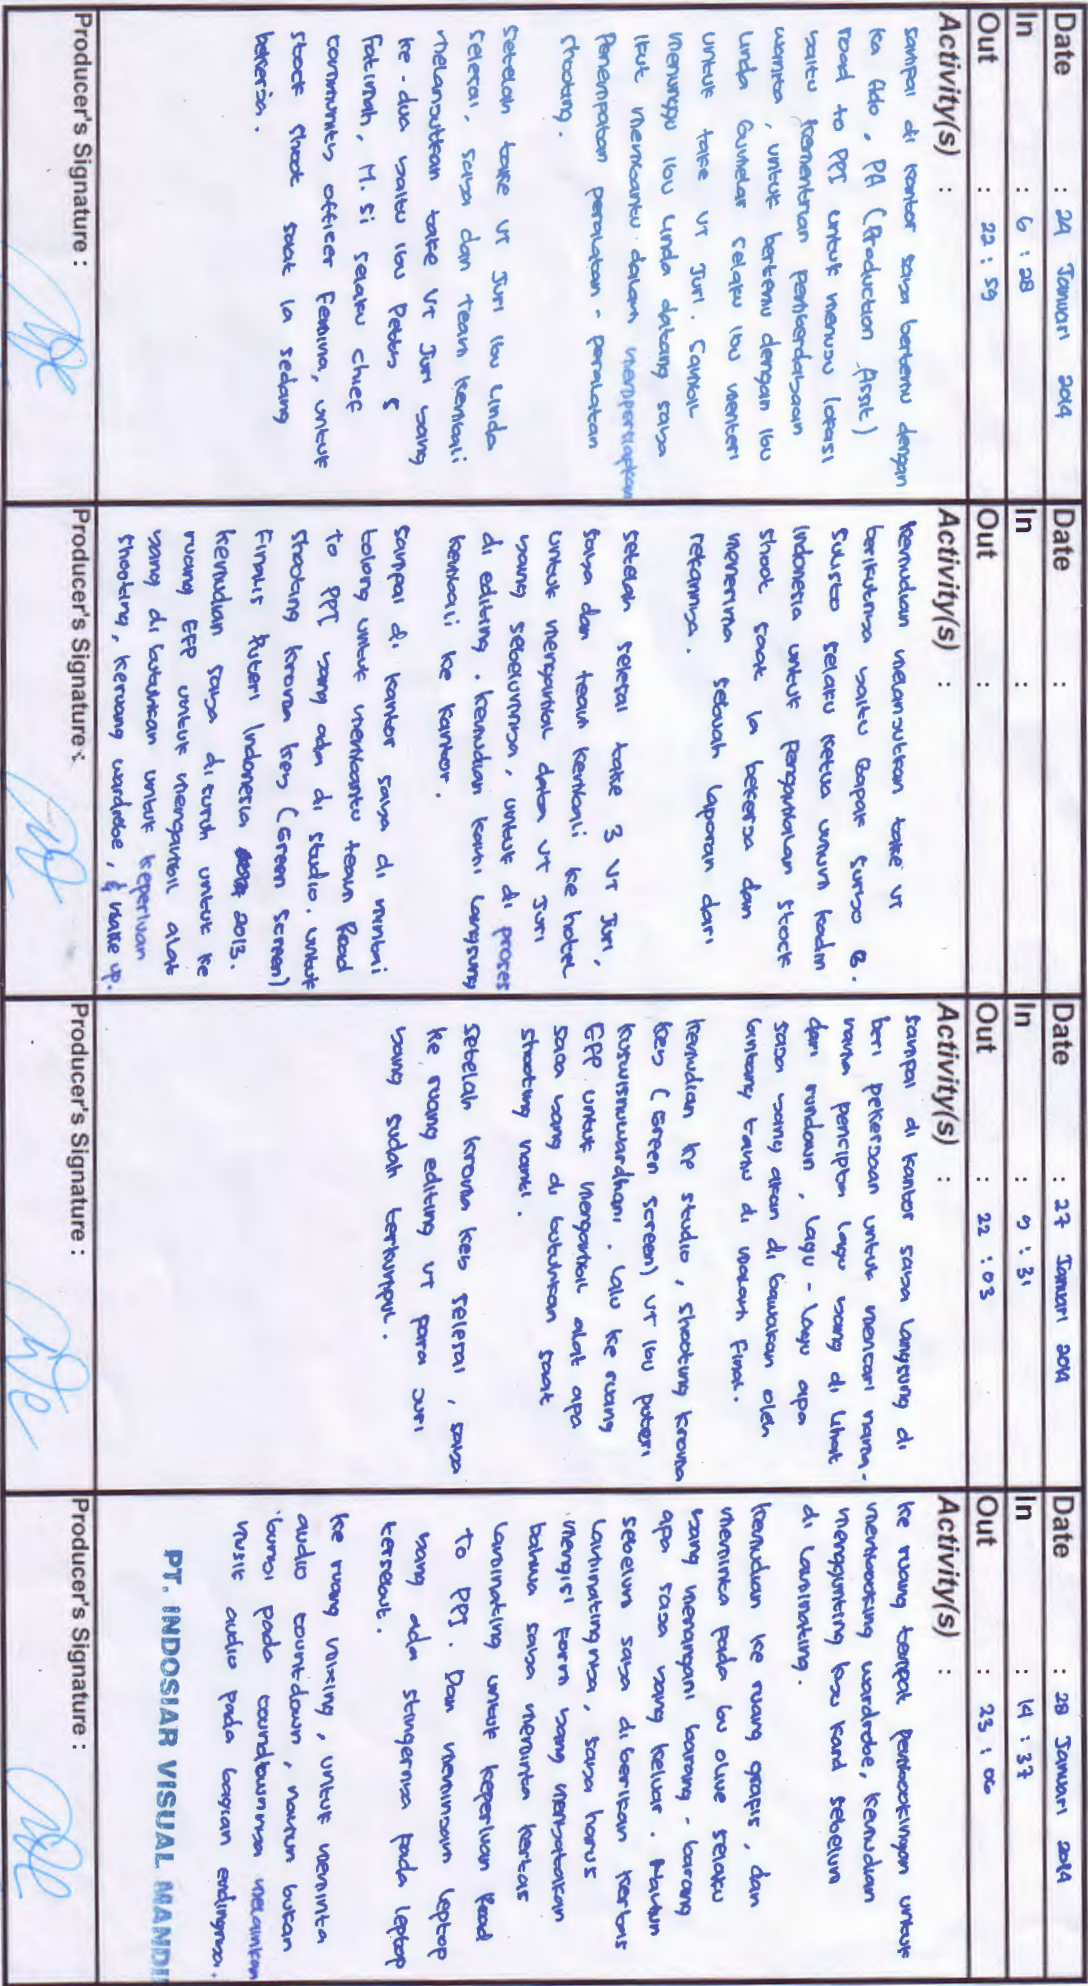 Date : 24 Januari 2014
In : 6 : 28
Out : 22 : 59
Activity(s) :
sampai di kantor saya bertemu dengan
ka Ado, PA (Production Assit)
road to PPI untuk menuju lokasi
yaitu kementrian pemberdayaan
wanita, untuk bertemu dengan Ibu
Linda Gumelar selaku Ibu menteri
untuk take VT Juri. Sambil
menungu Ibu Linda datang saya
ikut membantu dalam mempersiapkan
Penempatan peralatan - peralatan
shooting.
Setelah take VT Juri Ibu Linda
selesai, saya dan team kembali
melanjutkan take VT Juri yang
ke - dua yaitu Ibu Petty S
Fatimah, M. si selaku chief
community officer Femina, untuk
stock shoot saat Ia sedang
bekerja.
Producer's Signature :
Date :
In :
Out :
Activity(s) :
Kemudian melanjutkan take VT
berikutnya yaitu Bapak Suryo B.
Sulisto selaku ketua umum kadin
Indonesia untuk pengambilan stock
shoot saat Ia bekerja dan
menerima sebuah laporan dari
rekannya.
Setelah selesai take 3 VT Juri,
saya dan team kembali ke hotel
untuk mengambil data VT Juri
yang sebelumnya, untuk di proses
di editing. Kemudian kami langsung
kembali ke kantor.
Sampai di kantor saya di mintai
tolong untuk membantu team Road
to PPI yang ada di studio. untuk
shooting kroma key (Green Screen)
Finalis Puteri Indonesia 2013.
Kemudian saya di suruh untuk ke
ruang EFP untuk mengambil alat
yang di butuhkan untuk keperluan
shooting, keruang wardrobe, & make up.
Producer's Signature :
Date : 27 Januari 2014
In : 9 : 31
Out : 22 : 03
Activity(s) :
Sampai di kantor saya langsung di
beri pekerjaan untuk mencari nama-
nama pencipta lagu yang di lihat
dari rundown, lagu - lagu apa
saja yang akan di bawakan oleh
bintang tamu di malam Final.
Kemudian ke studio, shooting kroma
key (Green screen) VT Ibu puteri
kuswisnuwardhani. Lalu ke ruang
EFP untuk mengambil alat apa
saja yang di butuhkan saat
shooting nanti.
Setelah kroma key selesai, saya
ke ruang editing VT para juri
yang sudah terkumpul.
Producer's Signature :
Date : 28 Januari 2014
In : 14 : 37
Out : 23 : 06
Activity(s) :
Ke ruang tempat pembookingan untuk
membooking wardrobe, kemudian
mengunting kyu kard sebelum
di Laminating.
Kemudian ke ruang grafis, dan
meminta pada bu olive selaku
yang menangani barang - barang
apa saja yang keluar. Namun
sebelum saya di berikan kertas
Laminatingnya, saya harus
mengisi form yang menyatakan
bahwa saya meminta kertas
Laminating untuk keperluan Road
To PPI. Dan meminjam leptop
yang ada stingernya pada leptop
tersebut.
Ke ruang mixing, untuk meminta
audio countdown, namun bukan
bunyi pada countdownnya melainkan
musik audio pada bagian endingnya.
PT. INDOSIAR VISUAL MANDI
Producer's Signature :